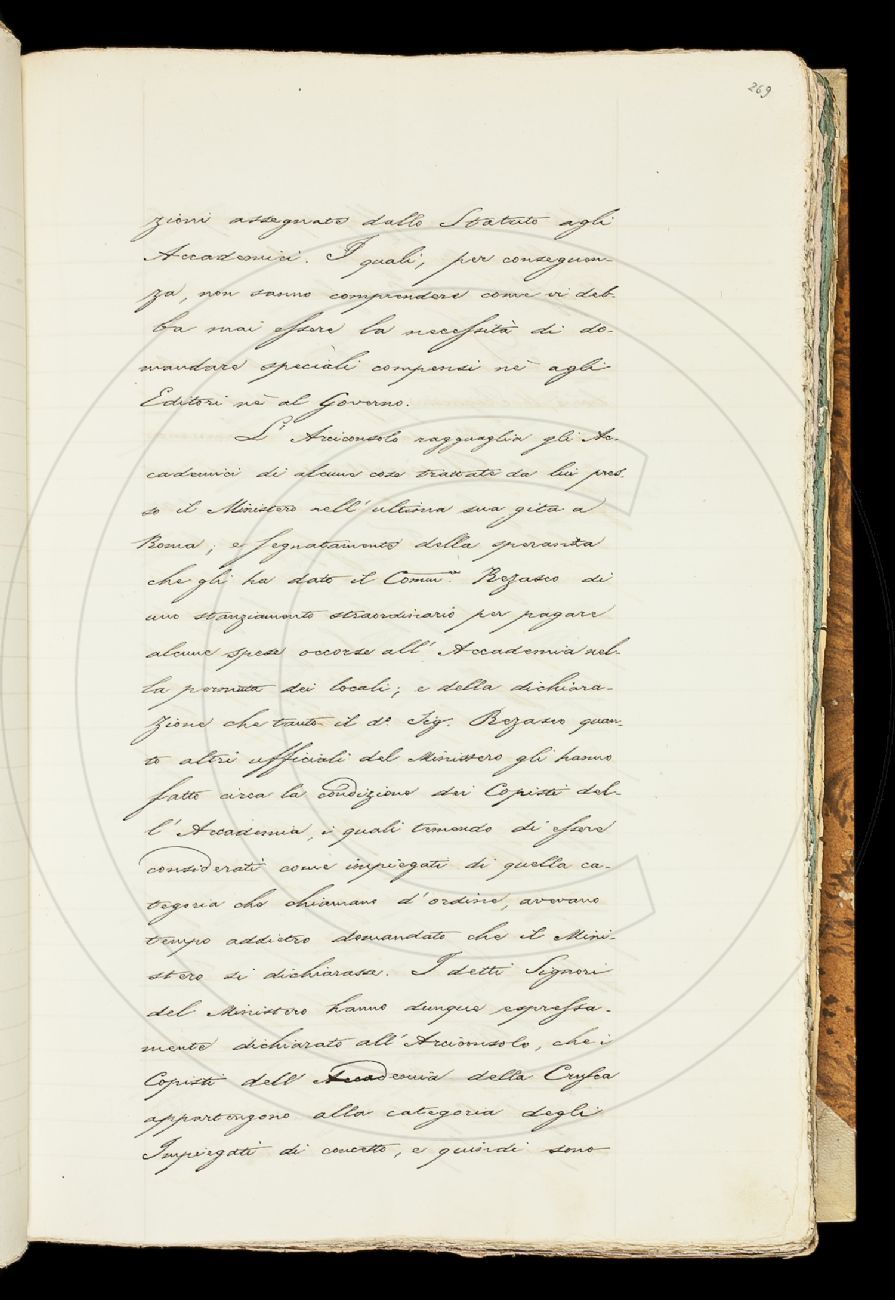 269
zioni assegnate dallo Statuto agli
Accademici. I quali, per conseguen-
za, non sanno comprendere come vi deb-
ba mai essere la necessità di do-
mandare speciali compensi nè agli
Editori nè al Governo.
L' Arciconsolo ragguaglia gli Ac-
cademici di alcune cose trattate da lui pres-
so il Ministero nell' ultima sua gita a
Roma; e segnatamente della speranza
che gli ha dato il Comm.re Rezasco di
uno stanziamento straordinario per pagare
alcune spese occorse all' Accademia nel-
la permuta dei locali; e della dichiara-
zione che tanto il do. Sig. Rezasco quan-
to altri ufficiali del Ministero gli hanno
fatto circa la condizione dei Copisti del-
l' Accademia, i quali temendo di essere
considerati come impiegati di quella ca-
tegoria che chiamano d' ordine, avevano
tempo addietro domandato che il Mini-
stero si dichiarasse. I detti Signori
del Ministero hanno dunque espressa-
mente dichiarato all' Arciconsolo, che i
Copisti dell' Accademia della Crusca
appartengono alla categoria degli
Impiegati di concetto, e quindi sono